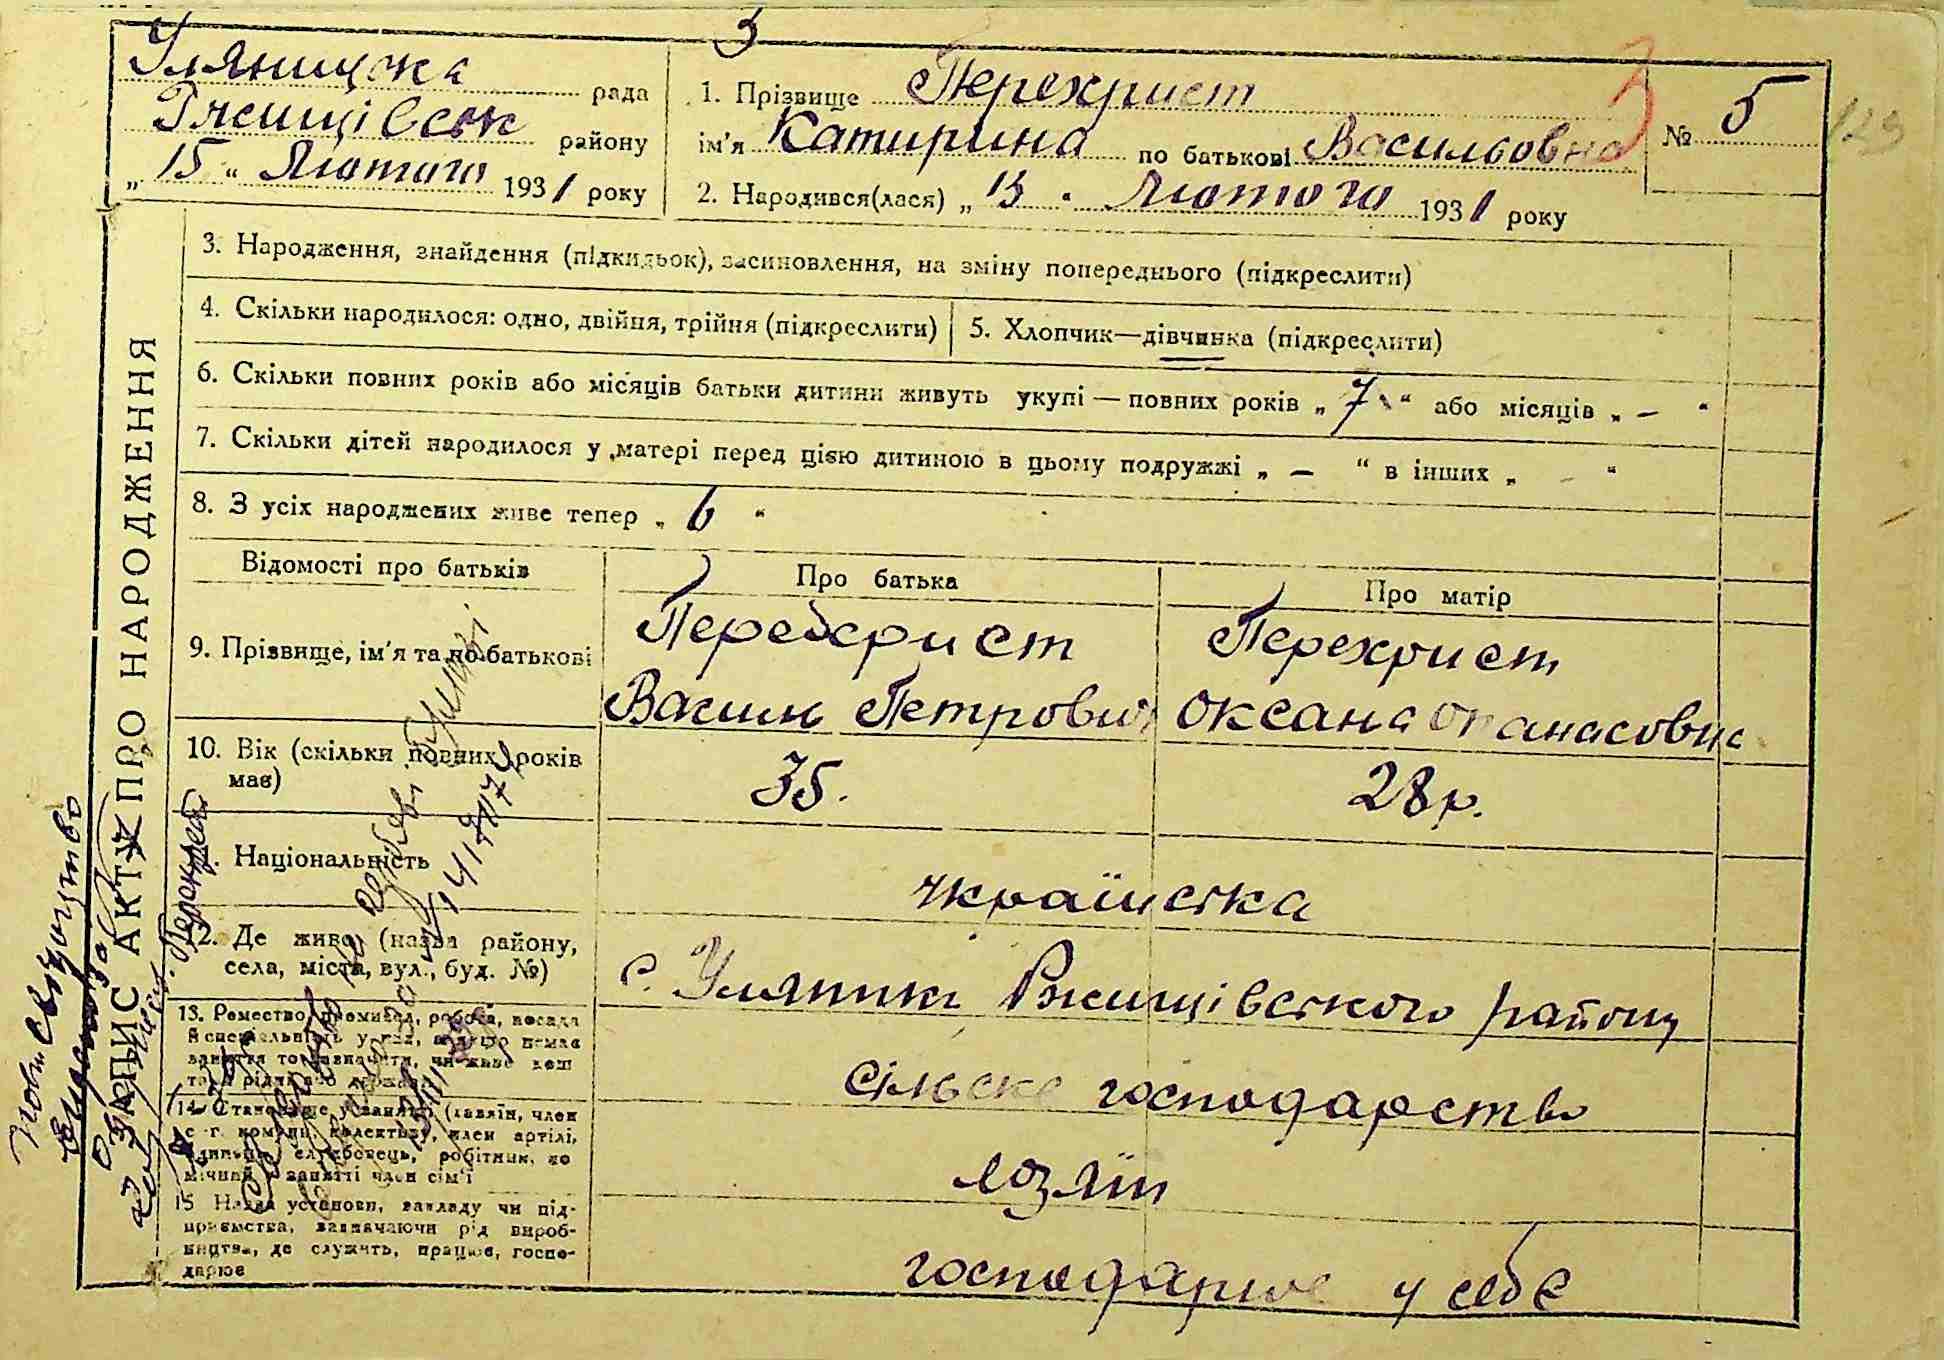 3
Уляницька рада
Ржищівськ району
„ 15 “ Лютого 1931 року
1. Прізвище Перехрист
ім'я Катирина по батькові Васильовна
2. Народився(лася) „ 13 “ Лютого 1931 року
№ 5
129
ЗАПИС АКТУ ПРО НАРОДЖЕННЯ
3. Народження, знайдення (підкидьок), засиновлення, на зміну попереднього (підкреслити)
4. Скільки народилося: одно, двійня, трійня (підкреслити)
5. Хлопчик—дівчинка (підкреслити)
6. Скільки повних років або місяців батьки дитини живуть укупі — повних років „ 7 “ або місяців „ – “
7. Скільки дітей народилося у матері перед цією дитиною в цьому подружжі „ – “ в інших „ – “
8. З усіх народжених живе тепер „ 6 “
Відомості про батьків
Про батька
Про матір
9. Прізвище, ім'я та по батькові
Перехрист
Василь Петрович
Перехрист
Оксана Опанасовна
10. Вік (скільки повних років
має)
35.
28 р.
11. Національність
українська
12. Де живе (назва району,
села, міста, вул., буд. №)
с. Уляники Ржищівського району
13. Ремество, промисел, робота, посада
й спеціяльність у ній, а якщо немає
заняття то зазначити, чи живе кош
том рідні або держави
сільське господарство
14. Становище у занятті (хазяїн, член
с.-г. комуни, колективу, член артілі,
одинець, службовець, робітник, по
мічний у занятті член сім'ї
хозяїн
15. Назва установи, закладу чи під-
приємства, зазначаючи рід вироб-
ництва, де служить, працює, госпо-
дарює
господарює у себе
Повт. свідоцтво